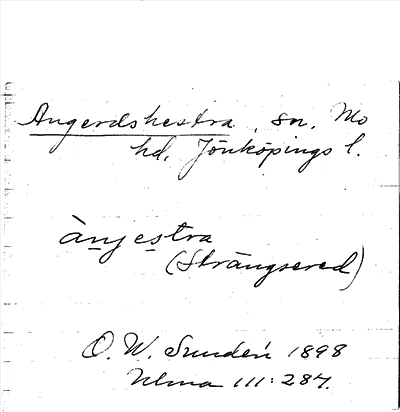 Angerdshestra, sn. Mo
hd. Jönköpings l.
ànjestra
(Strängsered)
O. W. Sundén 1898
Ulma 111:284.